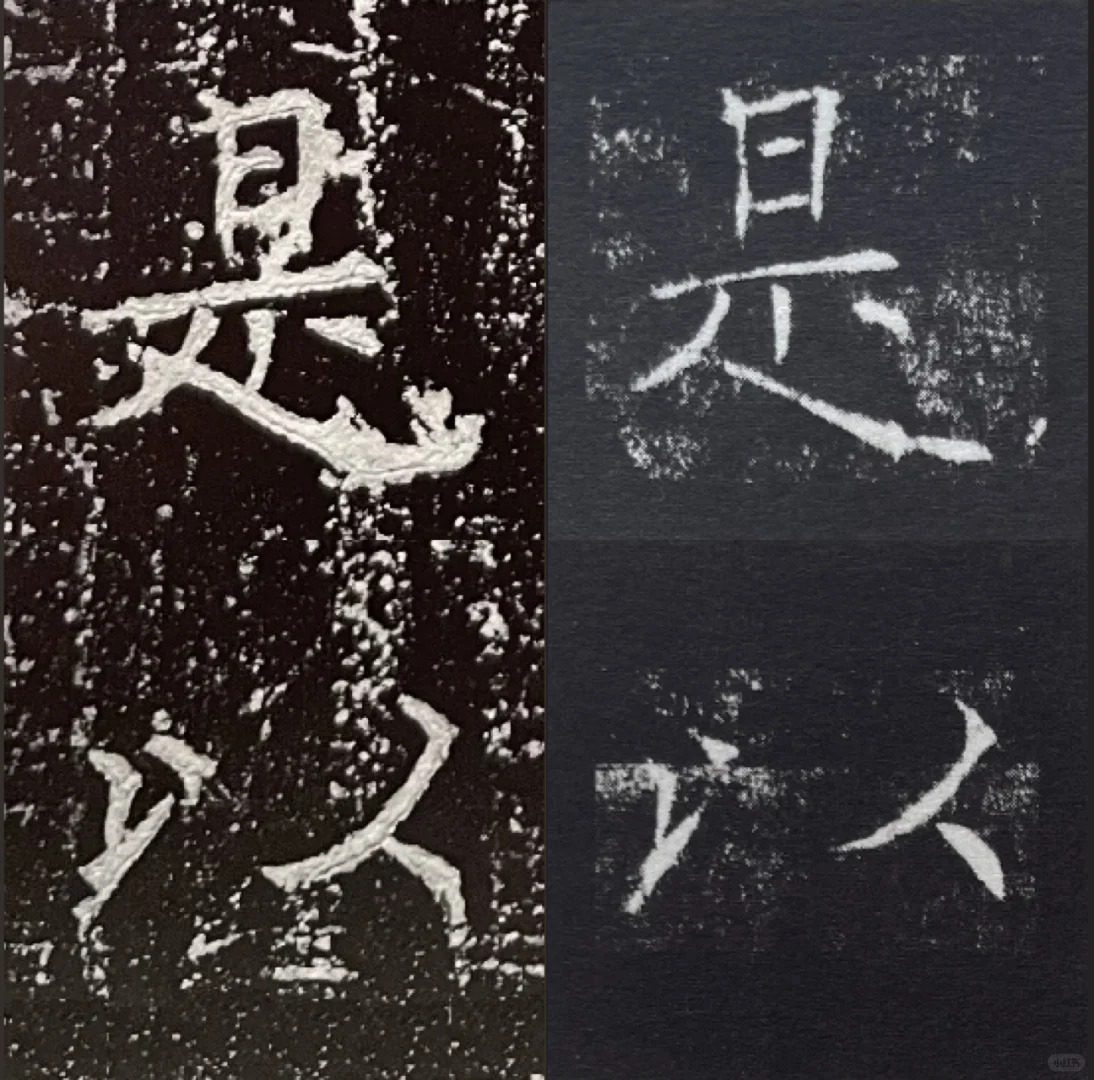 是 是
以 以